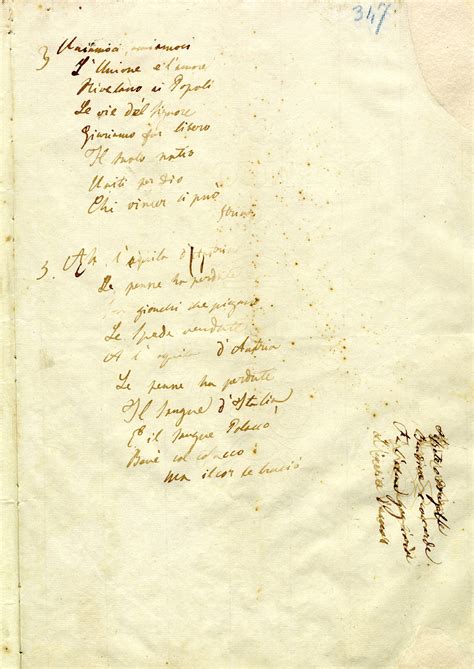 347
3 Uniamoci, amiamoci
L'Unione e l'amore
Rivelano ai Popoli
Le vie del Signore
Giuriamo far libero
Il suolo natio
Uniti per Dio
Chi vincer ci può
5. Ah l'aquila
Le penne ha perdute
Son giunchi che piegano
Le spade vendute
A l'aquila d'Austria
Le penne ha perdute
Il sangue d'Italia
E il sangue Polacco
Bevè col cosacco
Ma il cor le bruciò